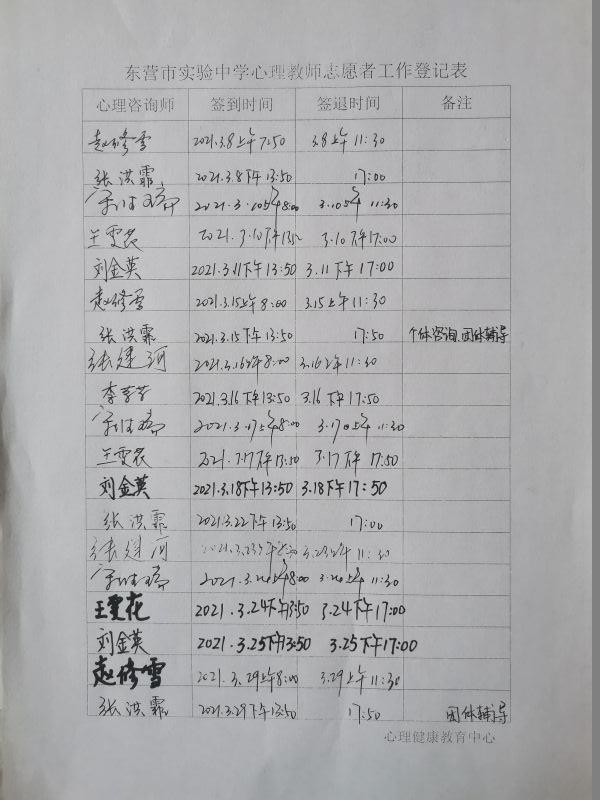 东营市实验中学心理教师志愿者工作登记表
心理咨询师 签到时间 签退时间 备注
赵修雪 2021.3.8上午7:50 3.8上午11:30
张洪霏 2021.3.8下午13:50 17:00
2021.3.10上午8:00 3.10上午11:30
王雯花 2021.3.10下午13:50 3.10下午17:00
刘金英 2021.3.11下午13:50 3.11下午17:00
赵修雪 2021.3.15上午8:00 3.15上午11:30
张洪霏 2021.3.15下午13:50 17:50 个体咨询、团体辅导
张建河 2021.3.16上午8:00 3.16上午11:30
李 2021.3.16下午13:50 3.16下午17:50
2021.3.17上午8:00 3.17上午11:30
王雯花 2021.3.17下午13:50 3.17下午17:50
刘金英 2021.3.18下午13:50 3.18下午17:50
张洪霏 2021.3.22下午13:50 17:00
张建河 2021.3.23 11:30
2021.3.24上午8:00 3.24上午11:30
王雯花 2021.3.24下午13:50 3.24下午17:00
刘金英 2021.3.25下午13:50 3.25下午17:00
赵修雪 2021.3.29上午8:00 3.29上午11:30
张洪霏 2021.3.29下午13:50 17:50 团体辅导
心理健康教育中心